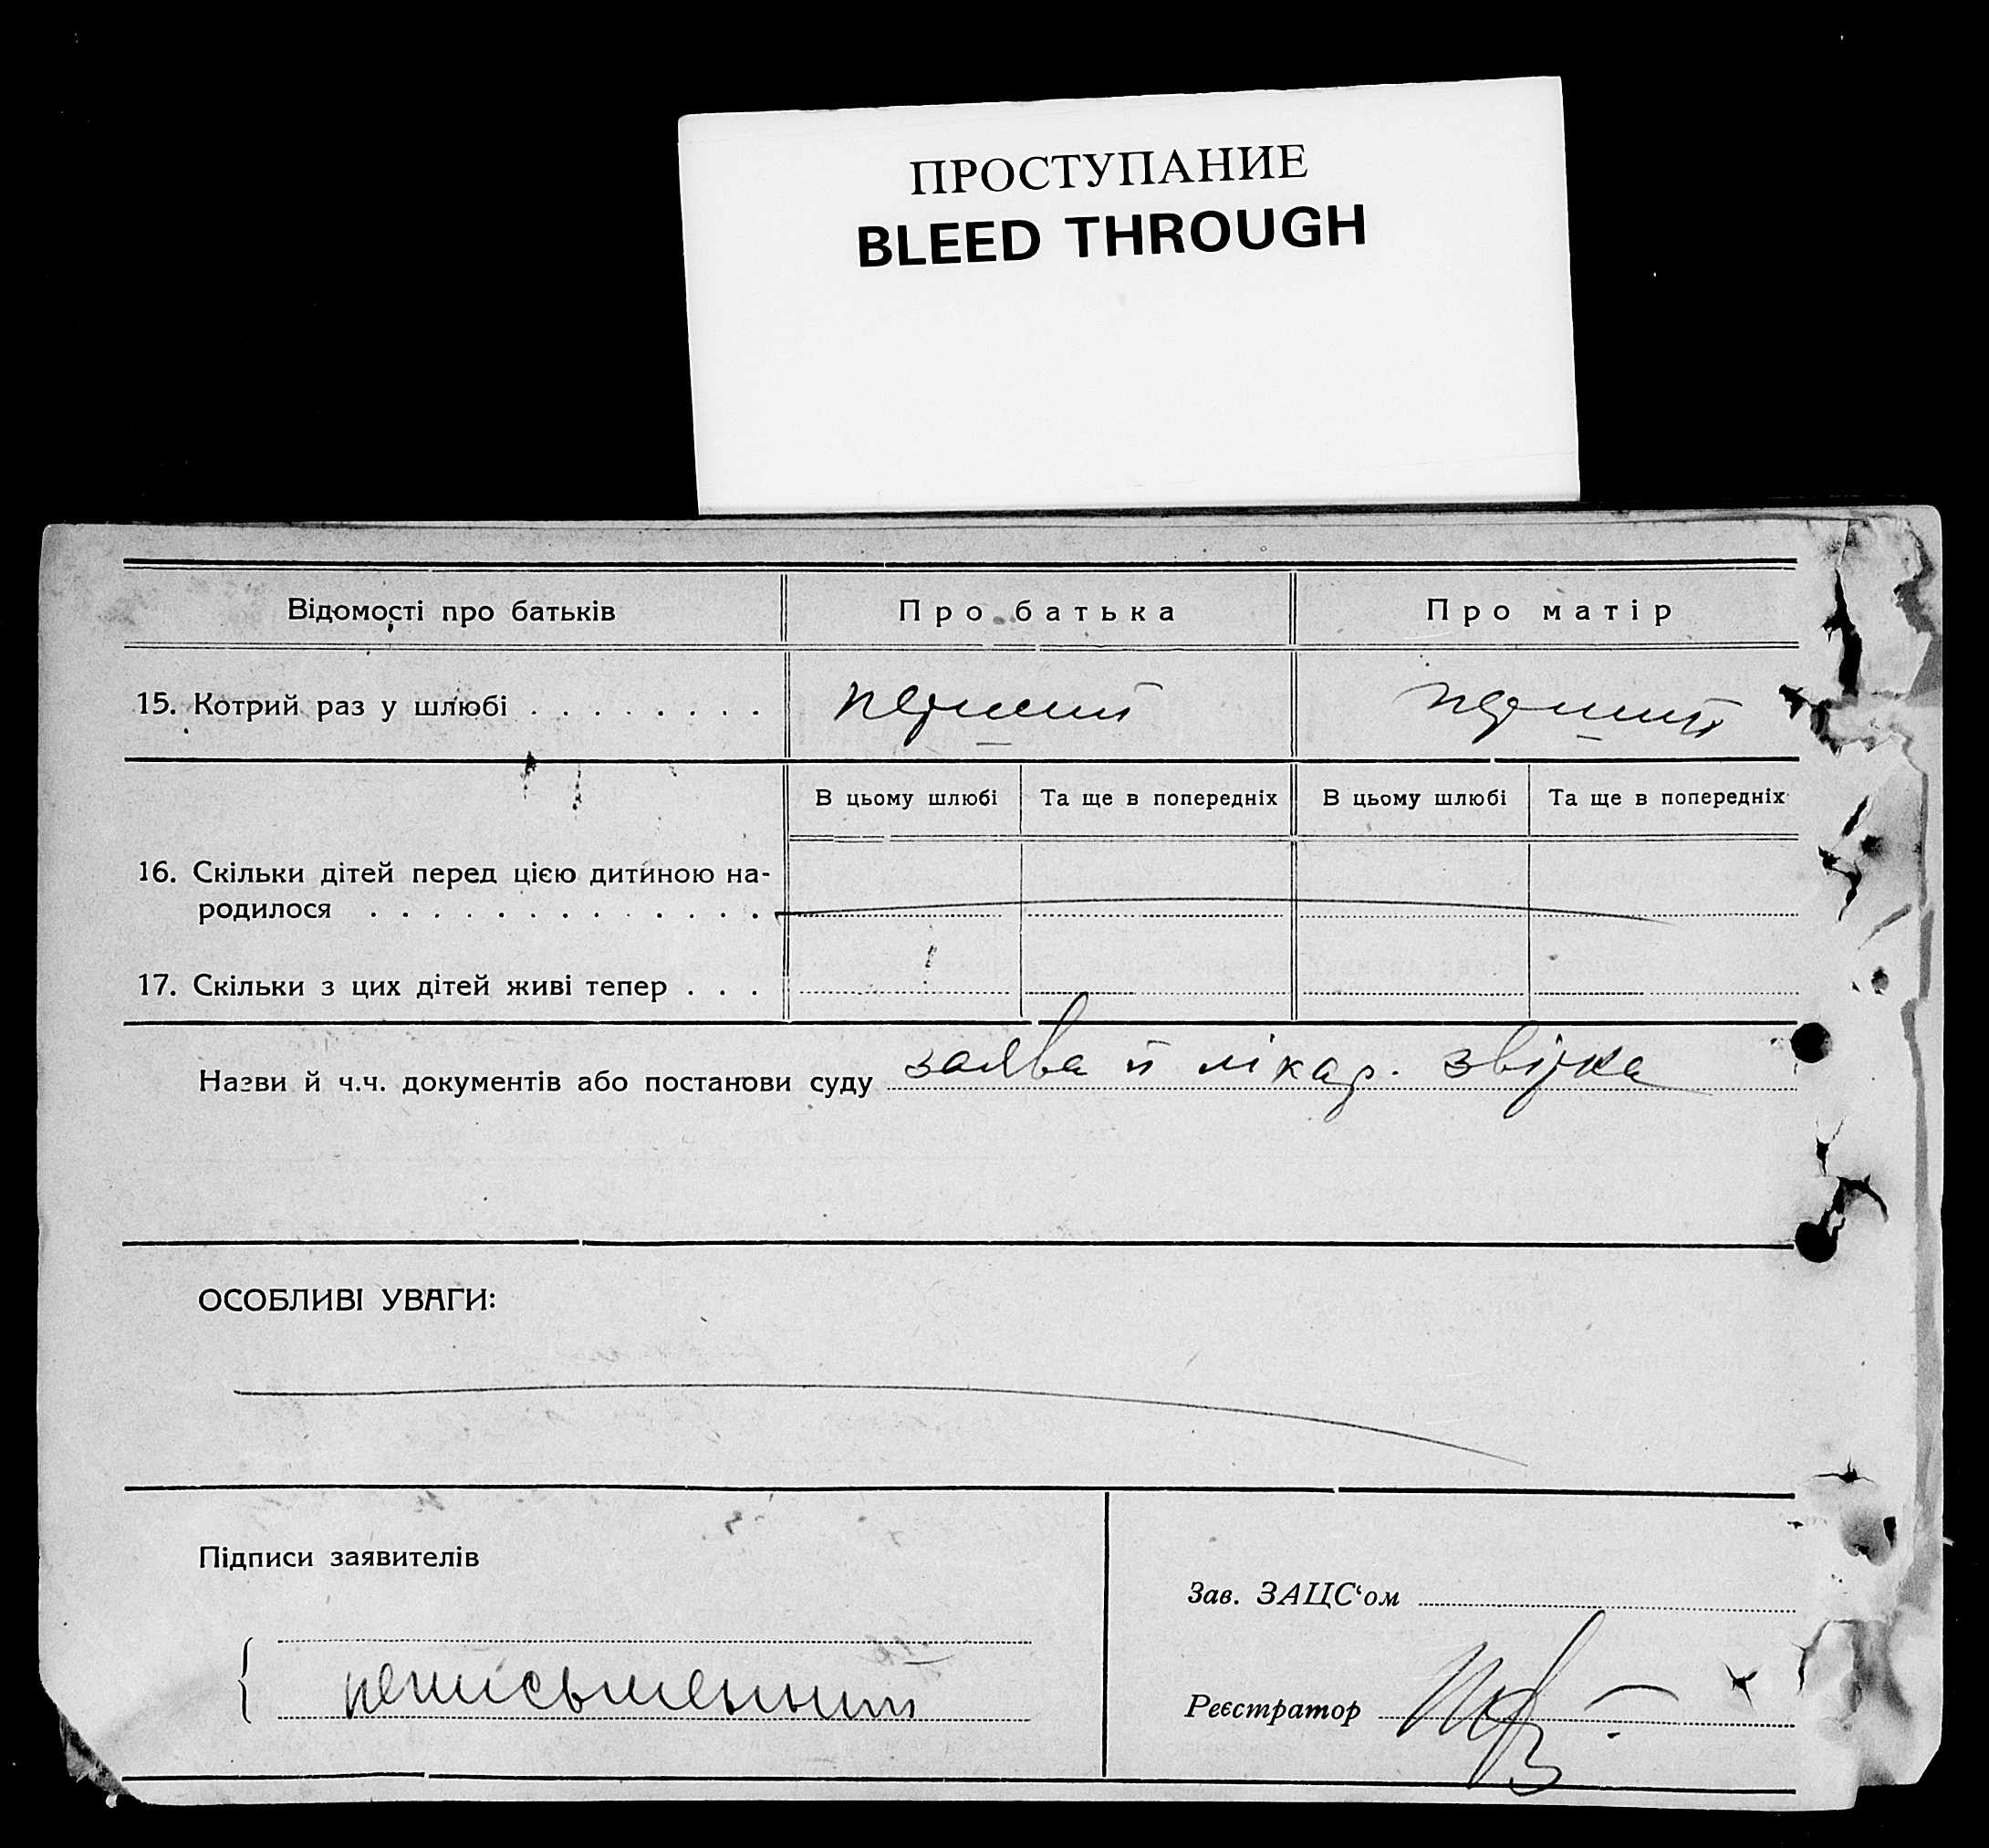 ПРОСТУПАНИЕ
BLEED THROUGH
Відомості про батьків Про батька Про матір
15. Котрий раз у шлюбі . . . . . . . . перший перший
В цьому шлюбі Та ще в попередніх В цьому шлюбі Та ще в попередніх
16. Скільки дітей перед цією дитиною на-
родилося . . . . . . . . . . . . . .
17. Скільки з цих дітей живі тепер . . .
Назви й ч.ч. документів або постанови суду заява й лікар. звірка
ОСОБЛИВІ УВАГИ:
Підписи заявителів
Зав. ЗАЦС‘ом
неписьменний
Реєстратор